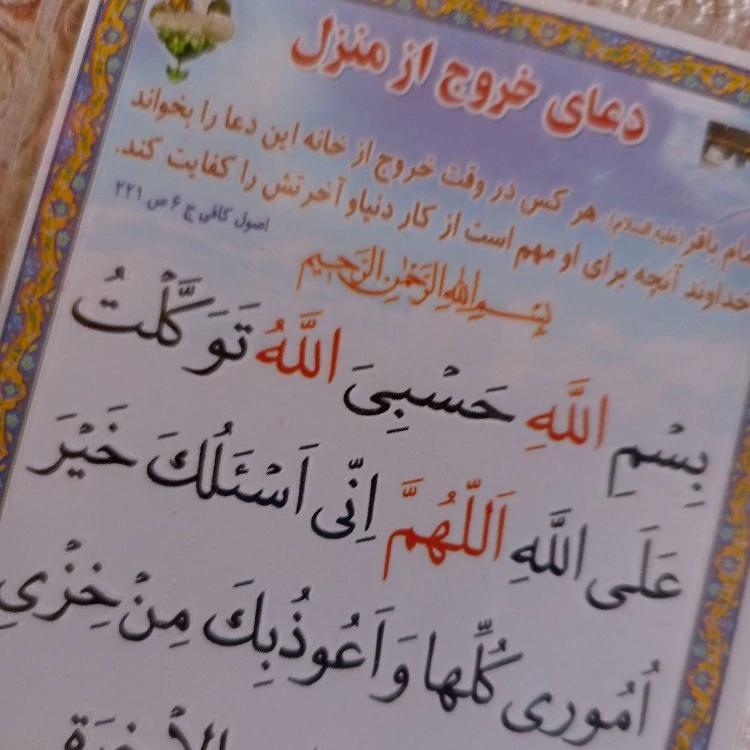 دعای خروج از منزل
باقر (علیه السلام): هر کس در وقت خروج از خانه این دعا را بخواند
خداوند آنچه برای او مهم است از کار دنیا و آخرتش را کفایت کند.
اصول کافی ج ۶ ص ۲۲۱
بِسْمِ اللهِ الرَّحْمٰنِ الرَّحیمِ
بِسْمِ اللَّهِ حَسْبِیَ اللَّهُ تَوَکَّلْتُ
عَلَی اللَّهِ اَللّهُمَّ اِنّی اَسْئَلُکَ خَیْرَ
اُمُوری کُلِّها وَ اَعُوذُبِکَ مِنْ خِزْیِ
الْاخِرَةِ